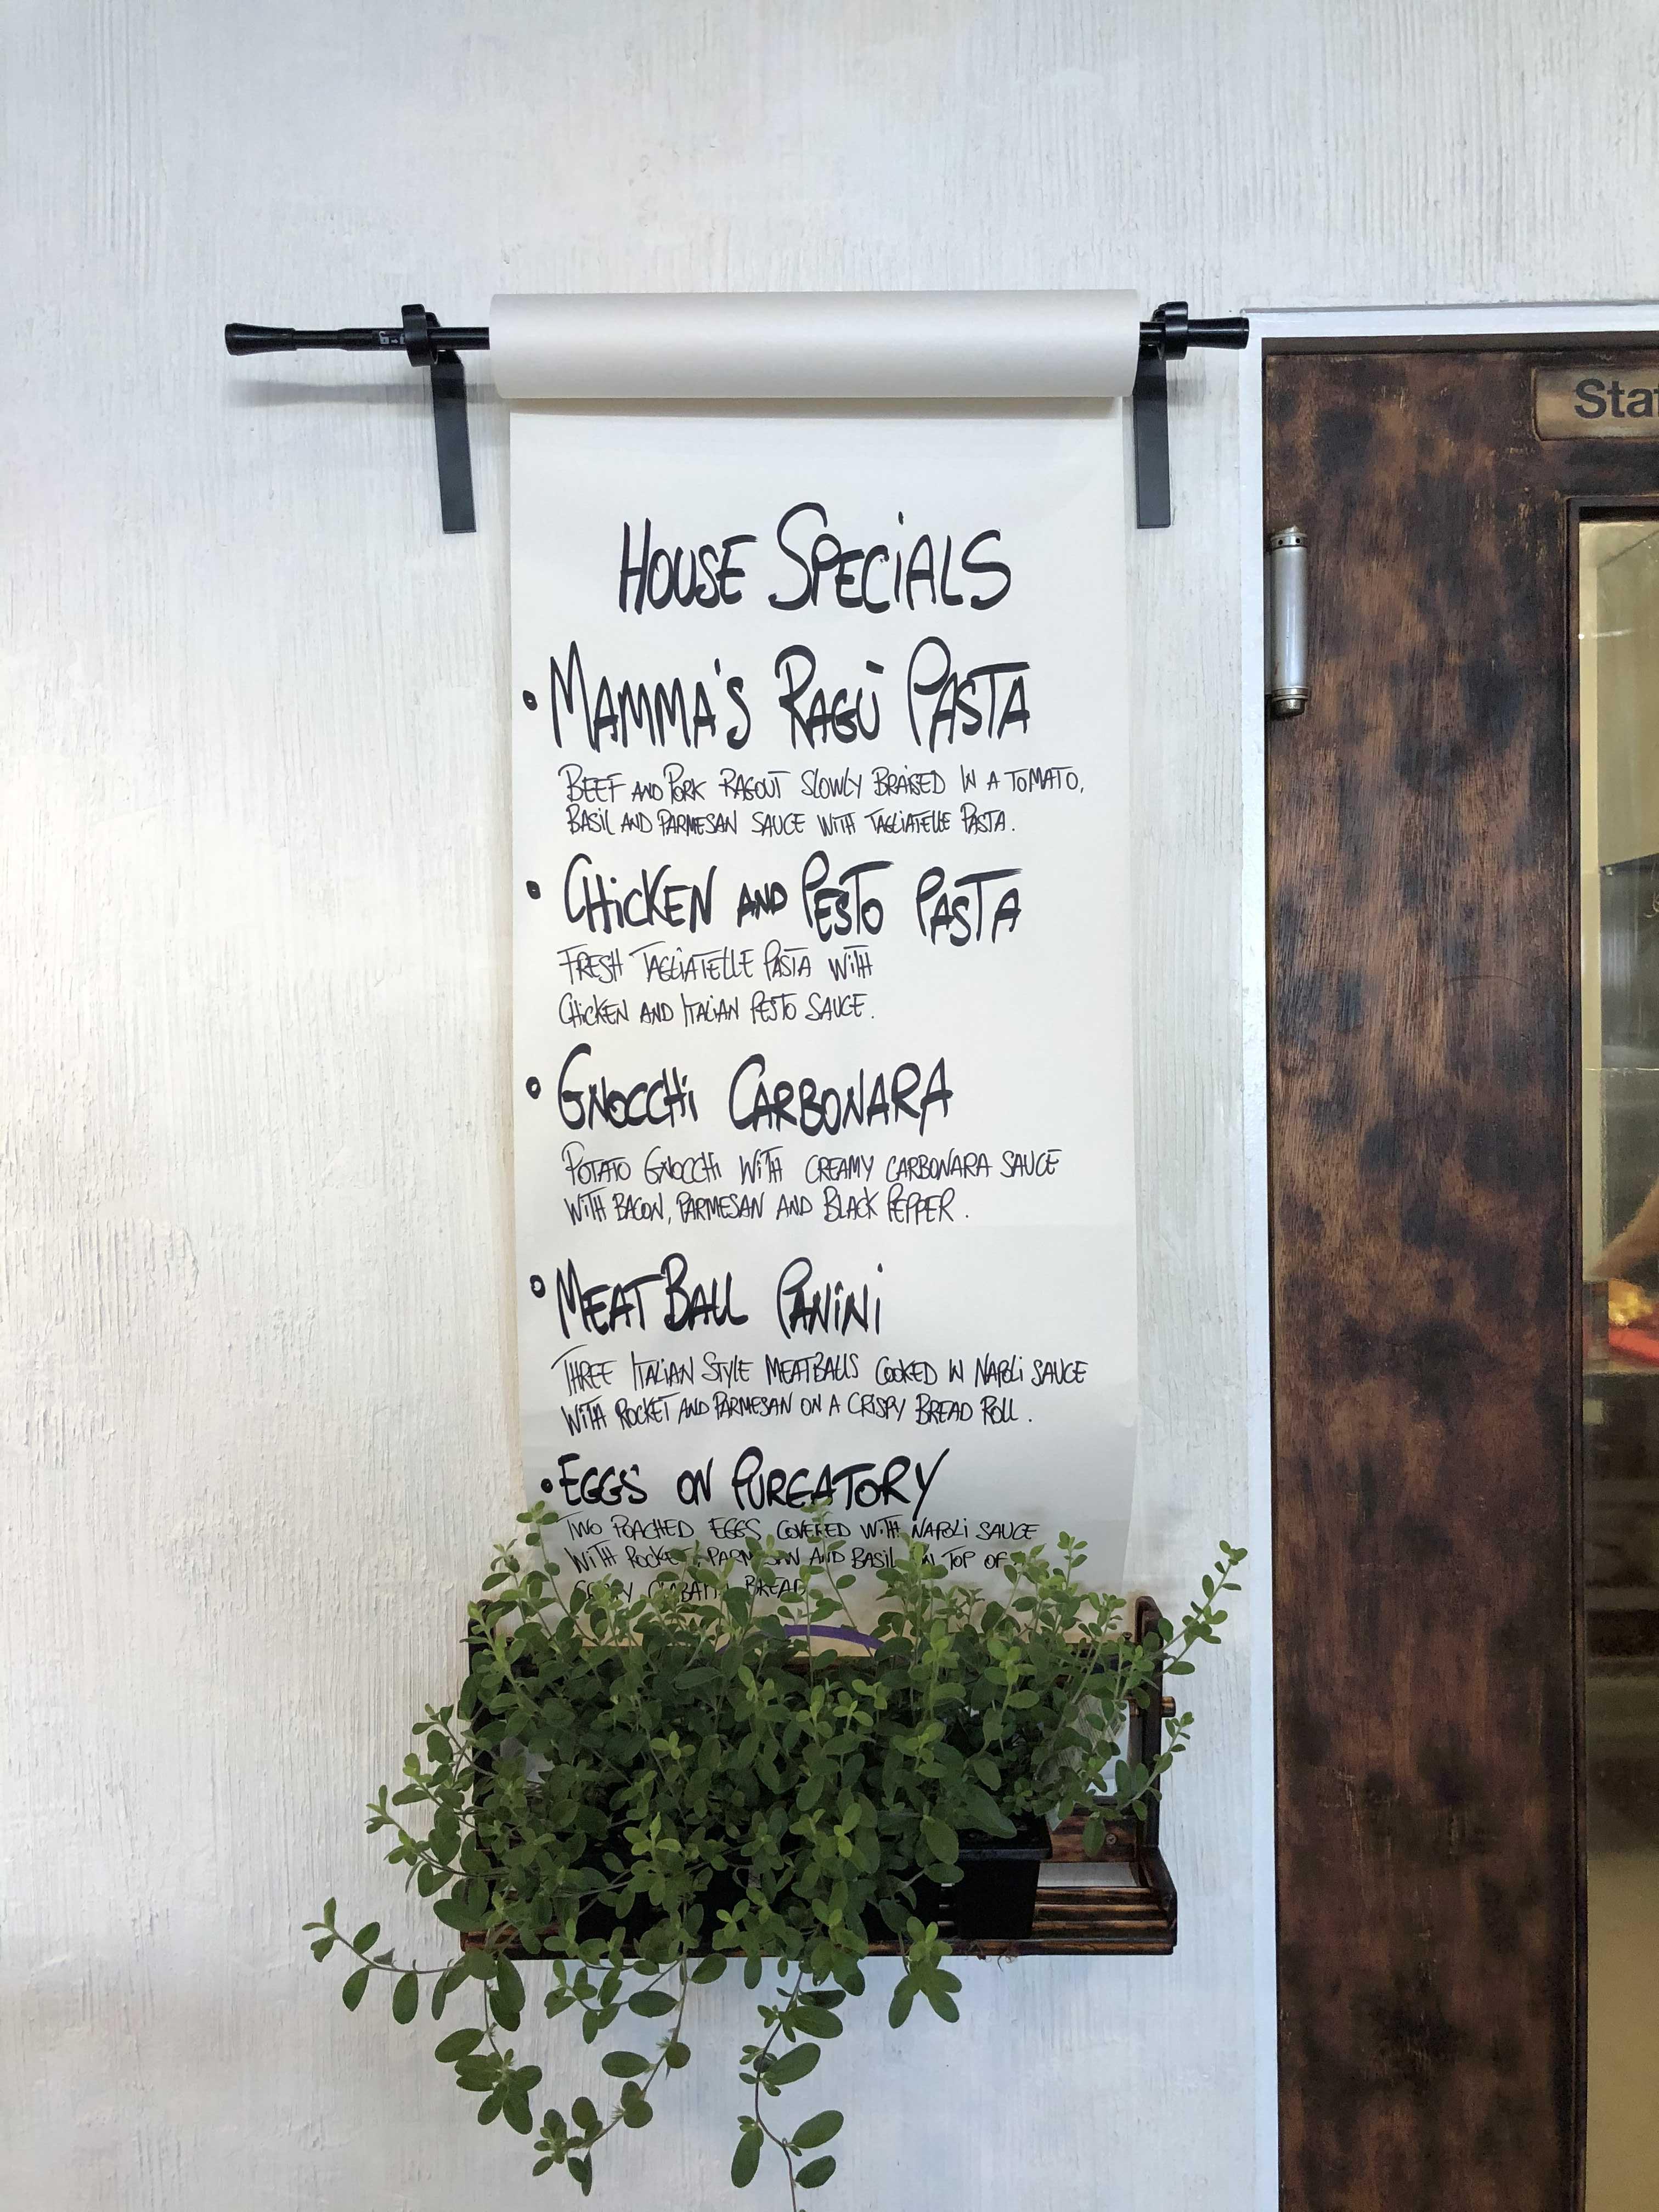 HOUSE SPECIALS
• MAMMA'S RAGÙ PASTA
BEEF AND PORK RAGOUT SLOWLY BRAISED IN A TOMATO,
BASIL AND PARMESAN SAUCE WITH TAGLIATELLE PASTA.
• CHICKEN AND PESTO PASTA
FRESH TAGLIATELLE PASTA WITH
CHICKEN AND ITALIAN PESTO SAUCE.
• GNOCCHI CARBONARA
POTATO GNOCCHI WITH CREAMY CARBONARA SAUCE
WITH BACON, PARMESAN AND BLACK PEPPER.
• MEAT BALL PANINI
THREE ITALIAN STYLE MEATBALLS COOKED IN NAPOLI SAUCE
WITH ROCKET AND PARMESAN ON A CRISPY BREAD ROLL.
• EGGS ON PURGATORY
TWO POACHED EGGS COVERED WITH NAPOLI SAUCE
WITH ROCKET, PARMESAN AND BASIL ON TOP OF
BREAD